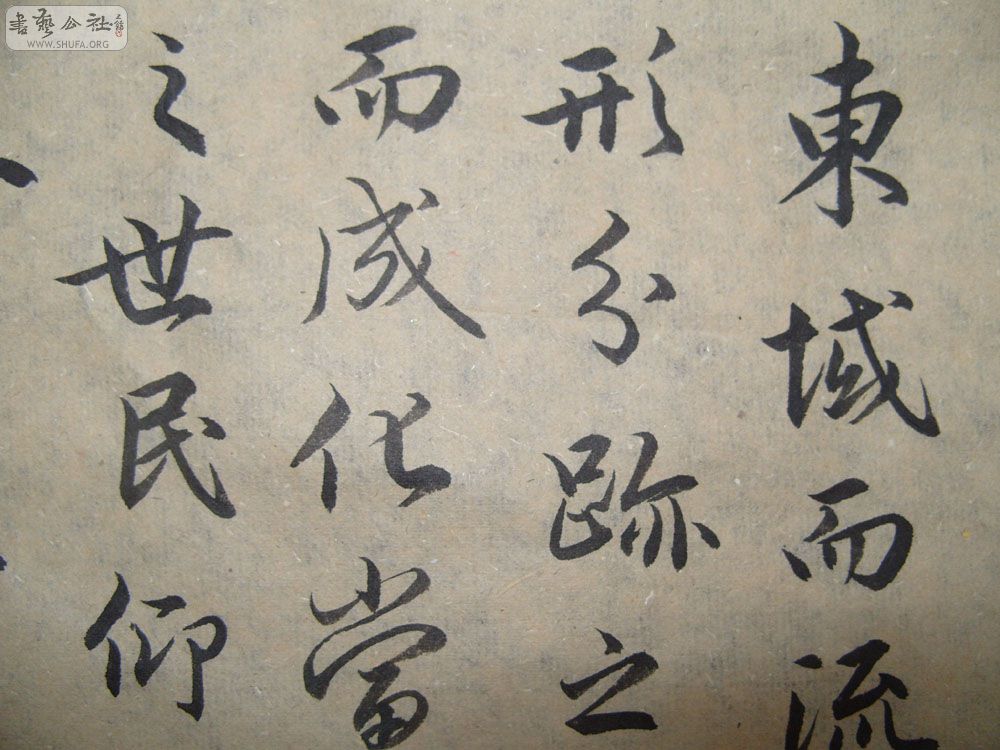 東域而流
形分跡之
而成化當
之世民仰
書藝公社
WWW.SHUFA.ORG